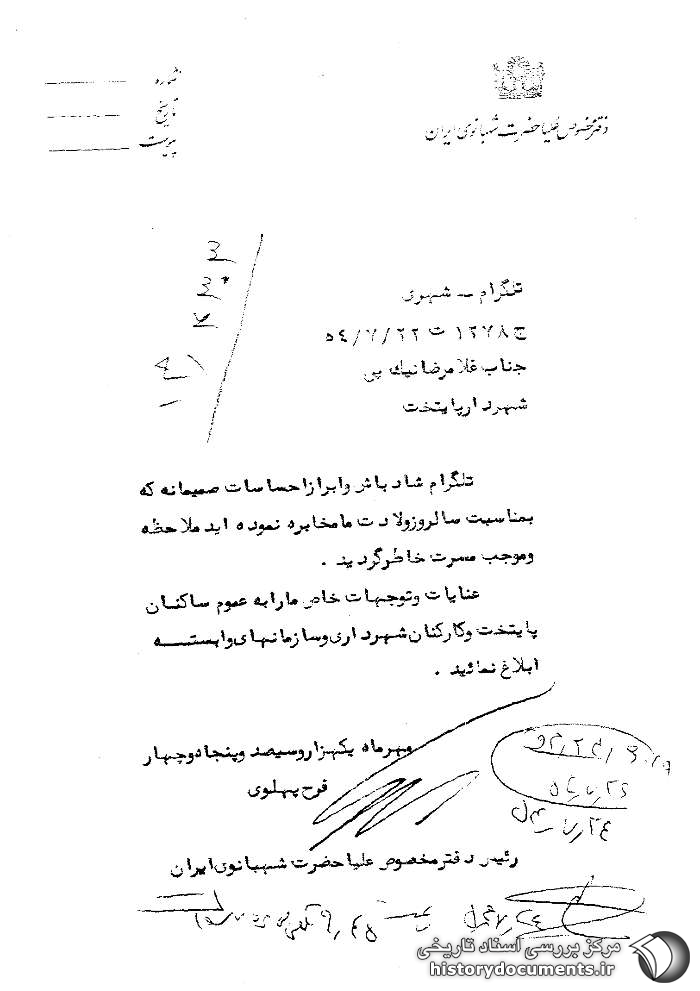 دفتر مخصوص علیاحضرت شهبانوی ایران
شماره
تاریخ
پیوست
تلگرام ــ شهری
ج ۱۲۷۸ ت ۵۴/۷/۲۲
جناب غلامرضا نیک پی
شهردار پایتخت
تلگرام شاد باش و ابراز احساسات صمیمانه که
بمناسبت سالروز ولادت ما مخابره نموده اید ملاحظه
و موجب مسرت خاطر گردید .
عنایات و توجهات خاص ما را به عموم ساکنان
پایتخت و کارکنان شهرداری و سازمانهای وابسته
ابلاغ نمائید .
مهرماه یکهزار و سیصد و پنجاه و چهار
فرح پهلوی
رئیس دفتر مخصوص علیا حضرت شهبانوی ایران
مرکز بررسی اسناد تاریخی
historydocuments.ir